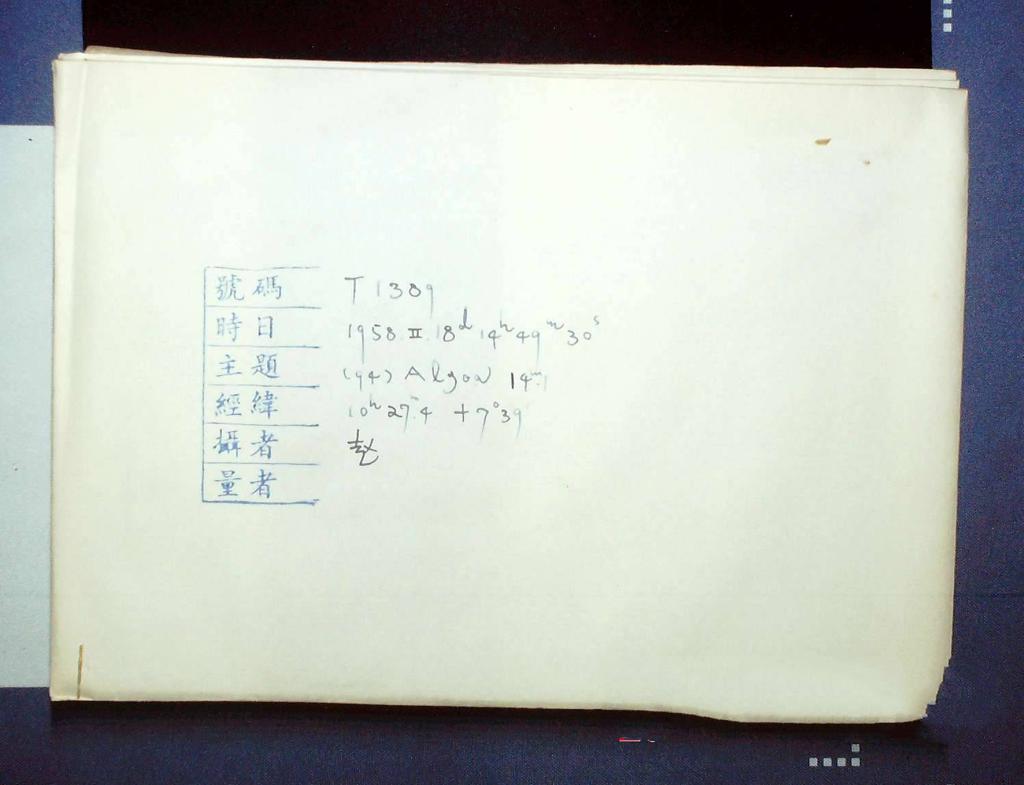 號碼 T 1389
時日 1958. II. 18ᵈ 14ʰ 49ᵐ 30ˢ
主題 (94) 14ᵐ.1
經緯 10ʰ 27ᵐ.4 +7°39
攝者 赵
量者